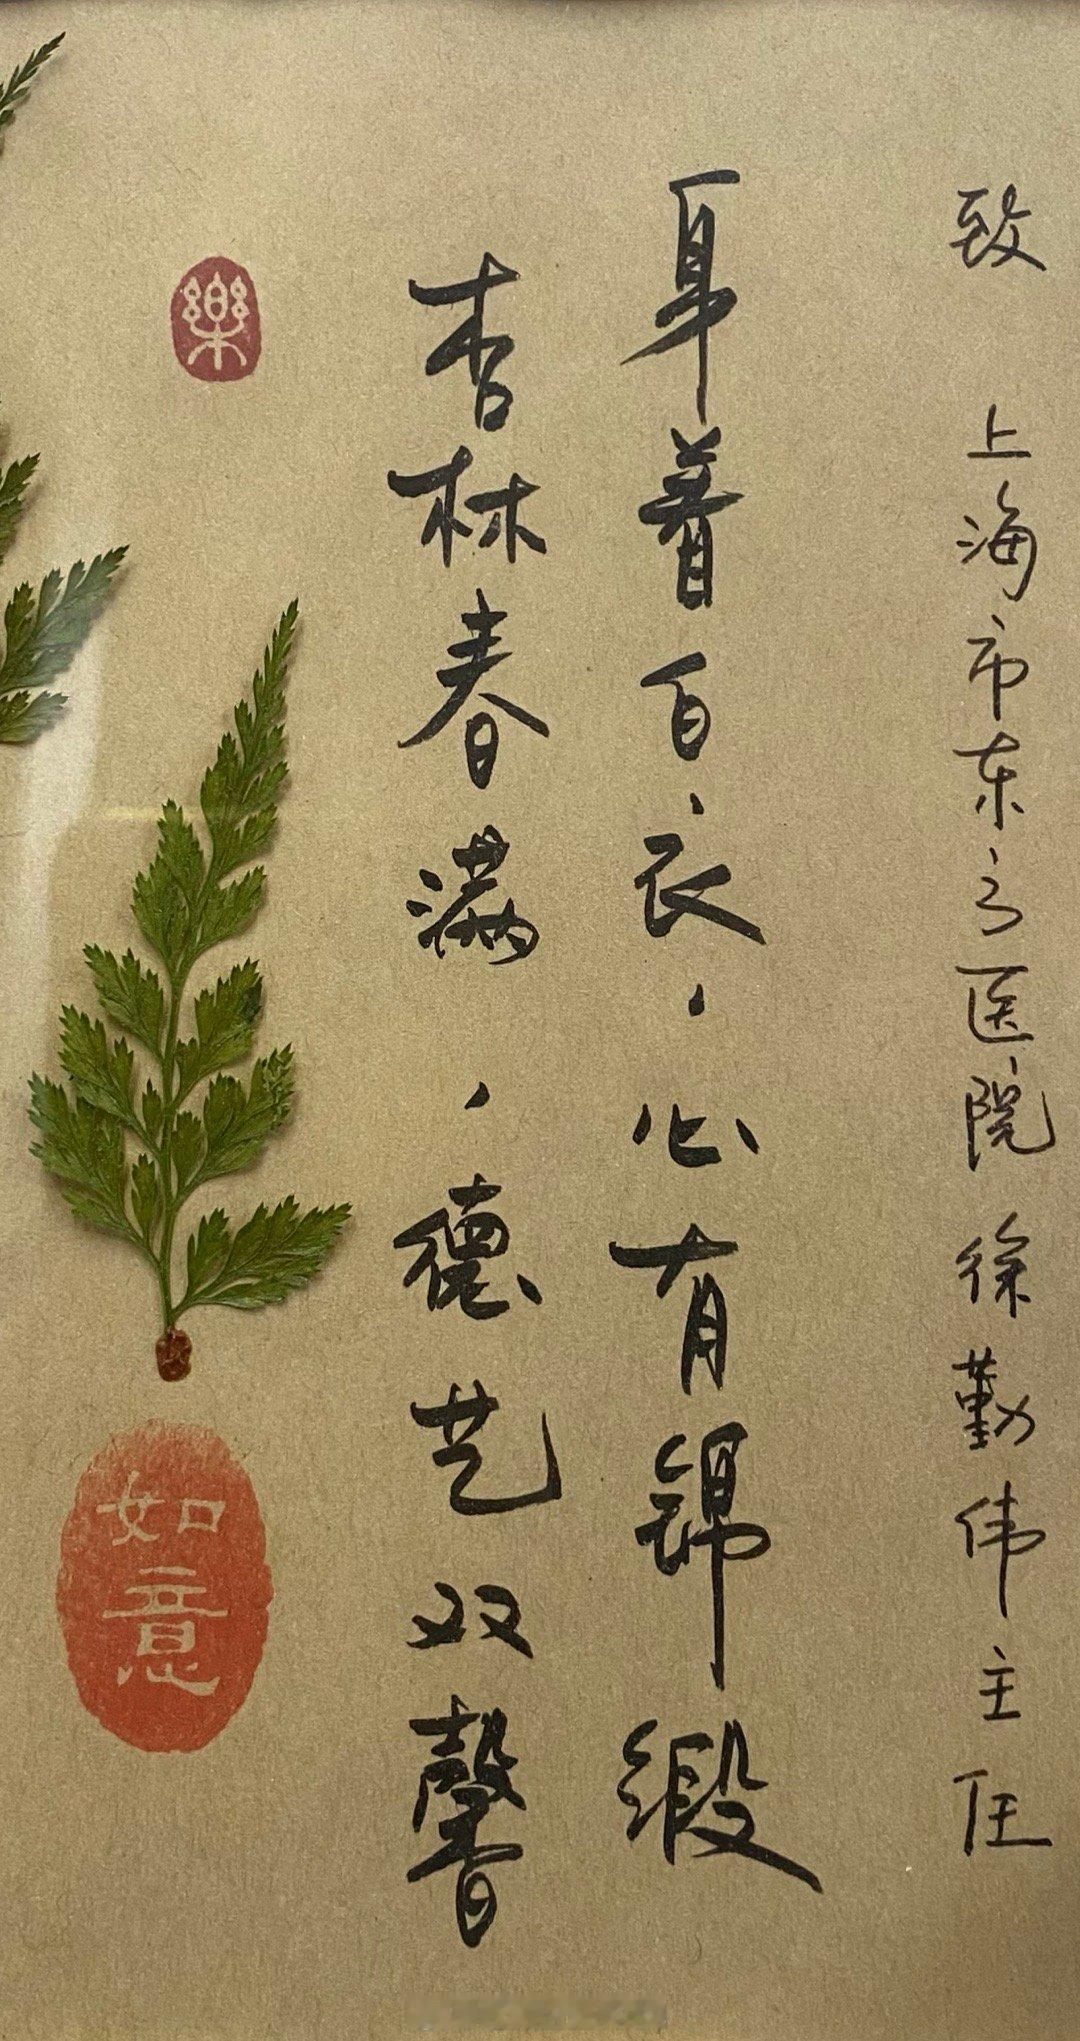 致 上海市东方医院徐勤伟主任
身着白衣，心有锦缎
杏林春满，德艺双馨
樂
如意